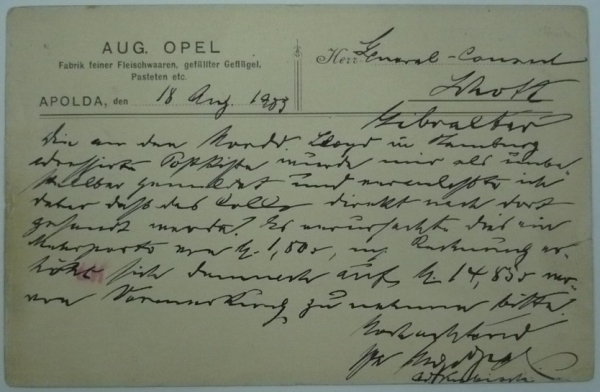 AUG. OPEL
Fabrik feiner Fleischwaaren, gefüllter Geflügel,
Pasteten etc.
APOLDA, den 18 Aug. 1903
Herr General-Consul
Schott
Gibraltar
Die an den Nordd. Lloyd in Hamburg
adressirte Postkiste wurde mir als unbe
stellbar gemeldet und veranlaßte ich
daher daß das Collo direkt nach dort
gesandt werde. Es verursachte dies ein
Mehrporto von M. 1,80, m. Rechnung er-
höht sich demnach auf M. 14,85
von Vormerkung zu nehmen bitte.
Hochachtend
Aug. Opel